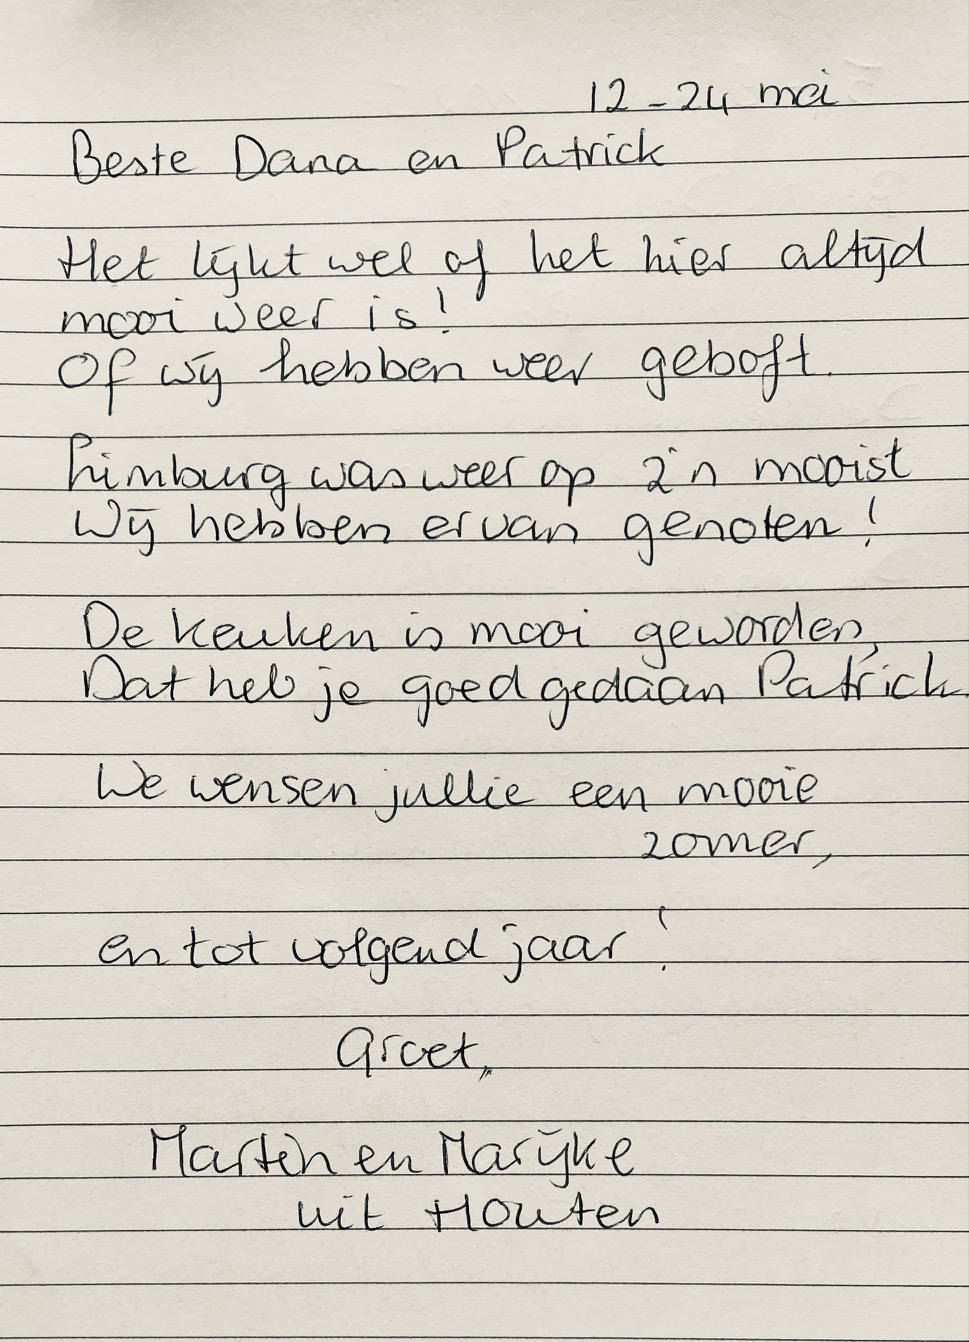 12-24 mei
Beste Dana en Patrick
Het lijkt wel of het hier altijd
mooi weer is!
Of wij hebben weer geboft.
Limburg was weer op z'n mooist
Wij hebben ervan genoten!
De keuken is mooi geworden,
Dat heb je goed gedaan Patrick
We wensen jullie een mooie
zomer,
en tot volgend jaar!
Groet,
Martin en Marijke
uit Houten